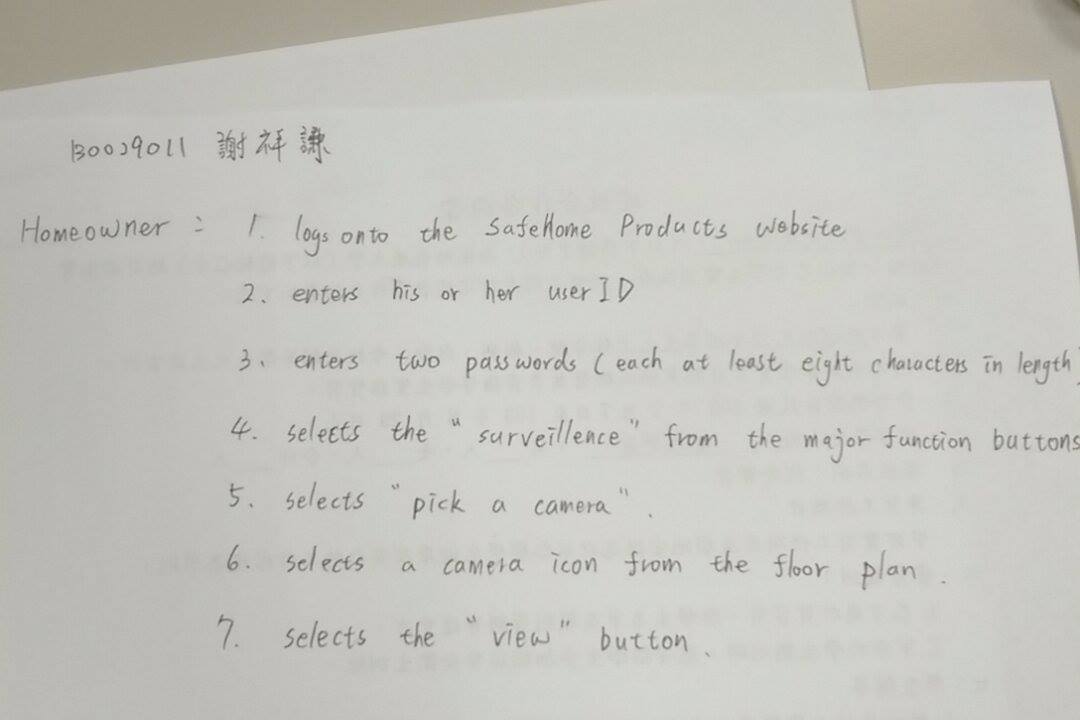 B0029011 謝祥謙
Homeowner : 1. logs onto the SafeHome Products website
2. enters his or her userID
3. enters two passwords (each at least eight characters in length)
4. selects the "surveillence" from the major function buttons
5. selects "pick a camera".
6. selects a camera icon from the floor plan.
7. selects the "view" button.